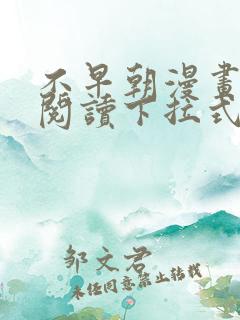 不早朝漫畫
閱讀下拉式
邹文君
未经同意禁止转载